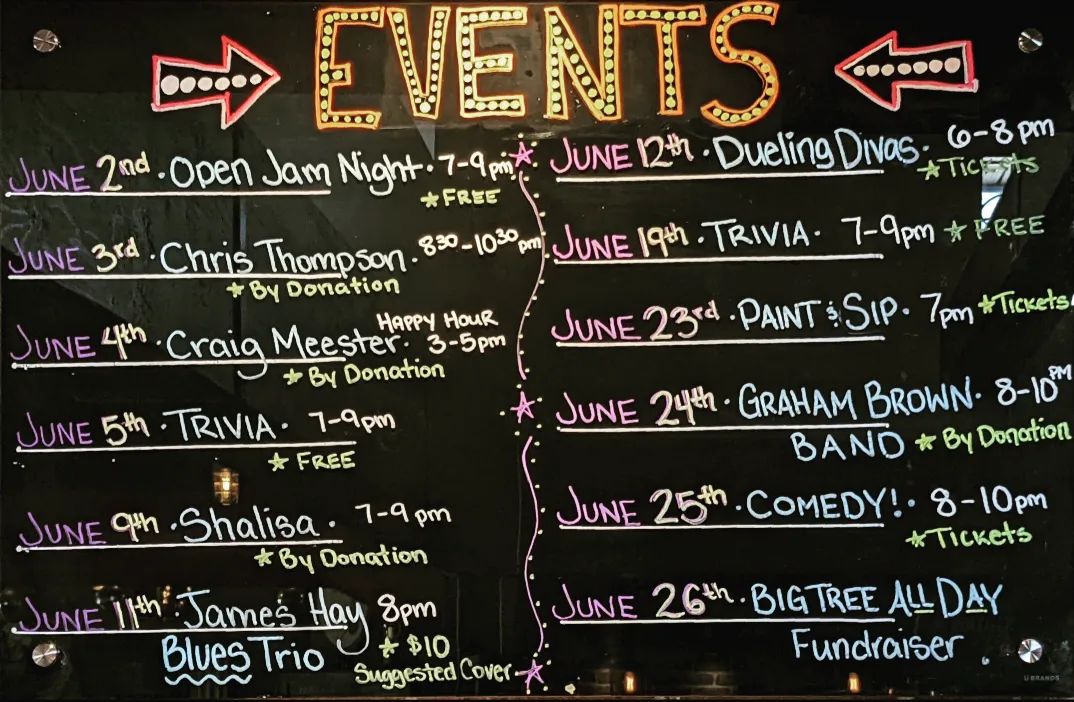 EVENTS
JUNE 2nd · Open Jam Night · 7-9pm
★ FREE
JUNE 3rd · Chris Thompson · 830-1030 pm
★ By Donation
JUNE 4th · Craig Meester · HAPPY HOUR 3-5pm
★ By Donation
JUNE 5th · TRIVIA · 7-9pm
★ FREE
JUNE 9th · Shalisa · 7-9pm
★ By Donation
JUNE 11th · James Hay 8pm
Blues Trio ★ $10
Suggested Cover
JUNE 12th · Dueling Divas · 6-8pm
★ Tickets
JUNE 19th · TRIVIA · 7-9pm ★ FREE
JUNE 23rd · PAINT & SIP · 7pm ★ Tickets
JUNE 24th · GRAHAM BROWN · 8-10PM
BAND ★ By Donation
JUNE 25th · COMEDY! · 8-10pm
★ Tickets
JUNE 26th · BIG TREE ALL DAY
Fundraiser
U BRANDS